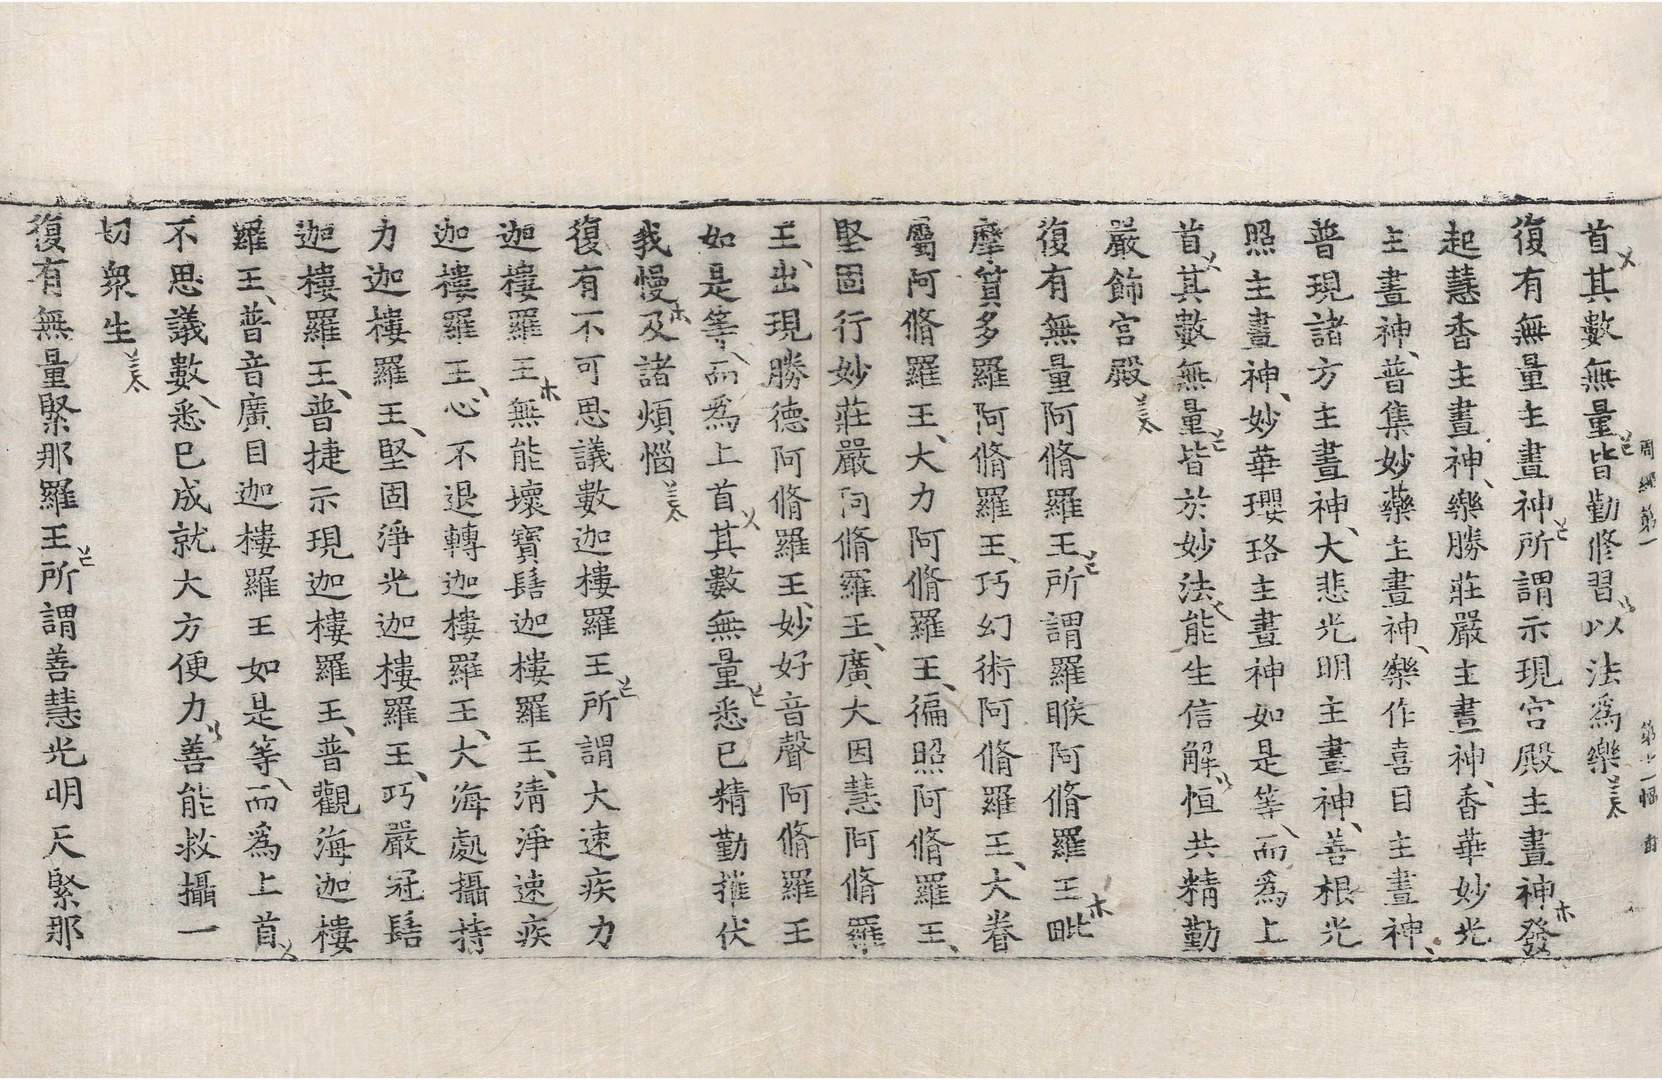 首其數無量皆勤修習以法爲樂
復有無量主晝神所謂示現宮殿主晝神發
起慧香主晝神樂勝莊嚴主晝神香華妙光
主晝神普集妙藥主晝神樂作喜目主晝神
普現諸方主晝神大悲光明主晝神善根光
照主晝神妙華瓔珞主晝神如是等而爲上
首其數無量皆於妙法能生信解恒共精勤
嚴飾宮殿
復有無量阿脩羅王所謂羅睺阿脩羅王毗
摩質多羅阿脩羅王巧幻術阿脩羅王大眷
屬阿脩羅王大力阿脩羅王徧照阿脩羅王
堅固行妙莊嚴阿脩羅王廣大因慧阿脩羅
王出現勝德阿脩羅王妙好音聲阿脩羅王
如是等而爲上首其數無量悉已精勤摧伏
我慢及諸煩惱
復有不可思議數迦樓羅王所謂大速疾力
迦樓羅王無能壞寶髻迦樓羅王清淨速疾
迦樓羅王心不退轉迦樓羅王大海處攝持
力迦樓羅王堅固淨光迦樓羅王巧嚴冠髻
迦樓羅王普捷示現迦樓羅王普觀海迦樓
羅王普音廣目迦樓羅王如是等而爲上首
不思議數悉已成就大方便力善能救攝一
切衆生
復有無量緊那羅王所謂善慧光明天緊那
周經第一